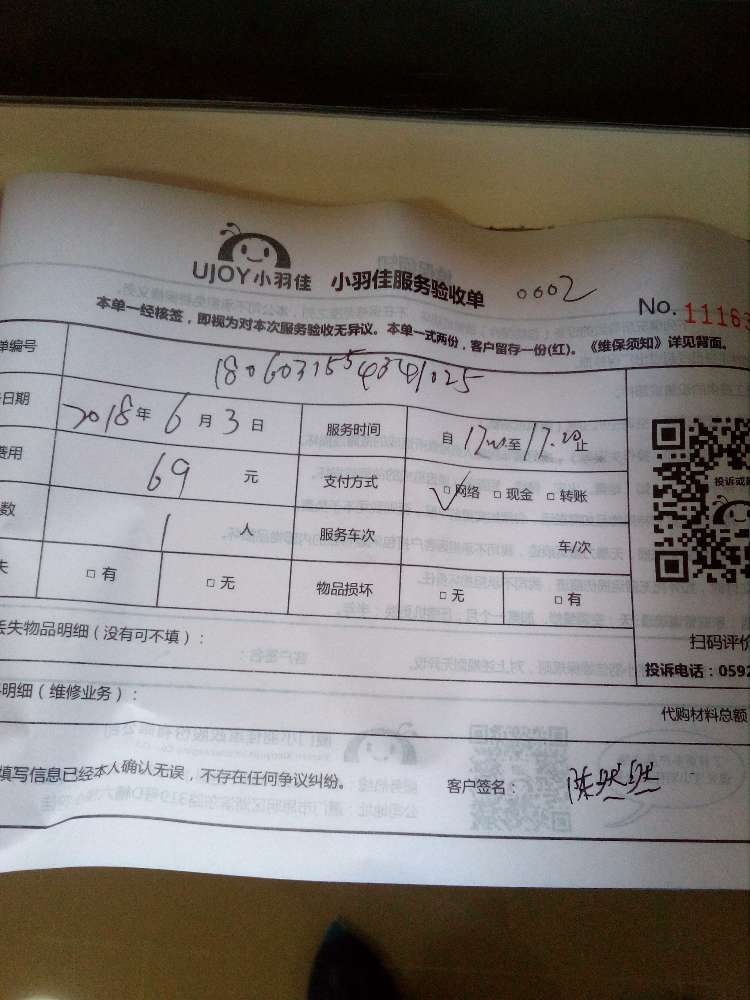 UJOY小羽佳 小羽佳服务验收单 0002
No. 11163
本单一经核签，即视为对本次服务验收无异议。本单一式两份，客户留存一份(红)。《维保须知》详见背面。
单编号
日期 2018年6月3日 服务时间 自 至17.20止
费用 69元 支付方式 ✓□网络 □现金 □转账
数 1人 服务车次 车/次
失 □有 □无 物品损坏 □无 □有
投诉或
扫码评价
丢失物品明细（没有可不填）：
投诉电话：0592
明细（维修业务）：
代购材料总额
填写信息已经本人确认无误，不存在任何争议纠纷。 客户签名：